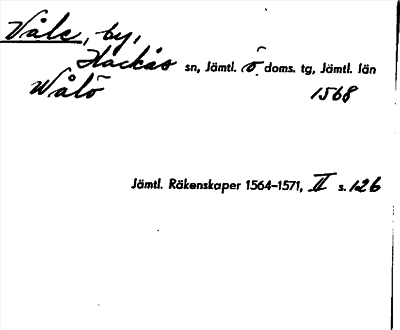 Våle, by,
Hackås sn, Jämtl. ö. doms. tg, Jämtl. län
Wålö 1568
Jämtl. Räkenskaper 1564–1571, II s. 126